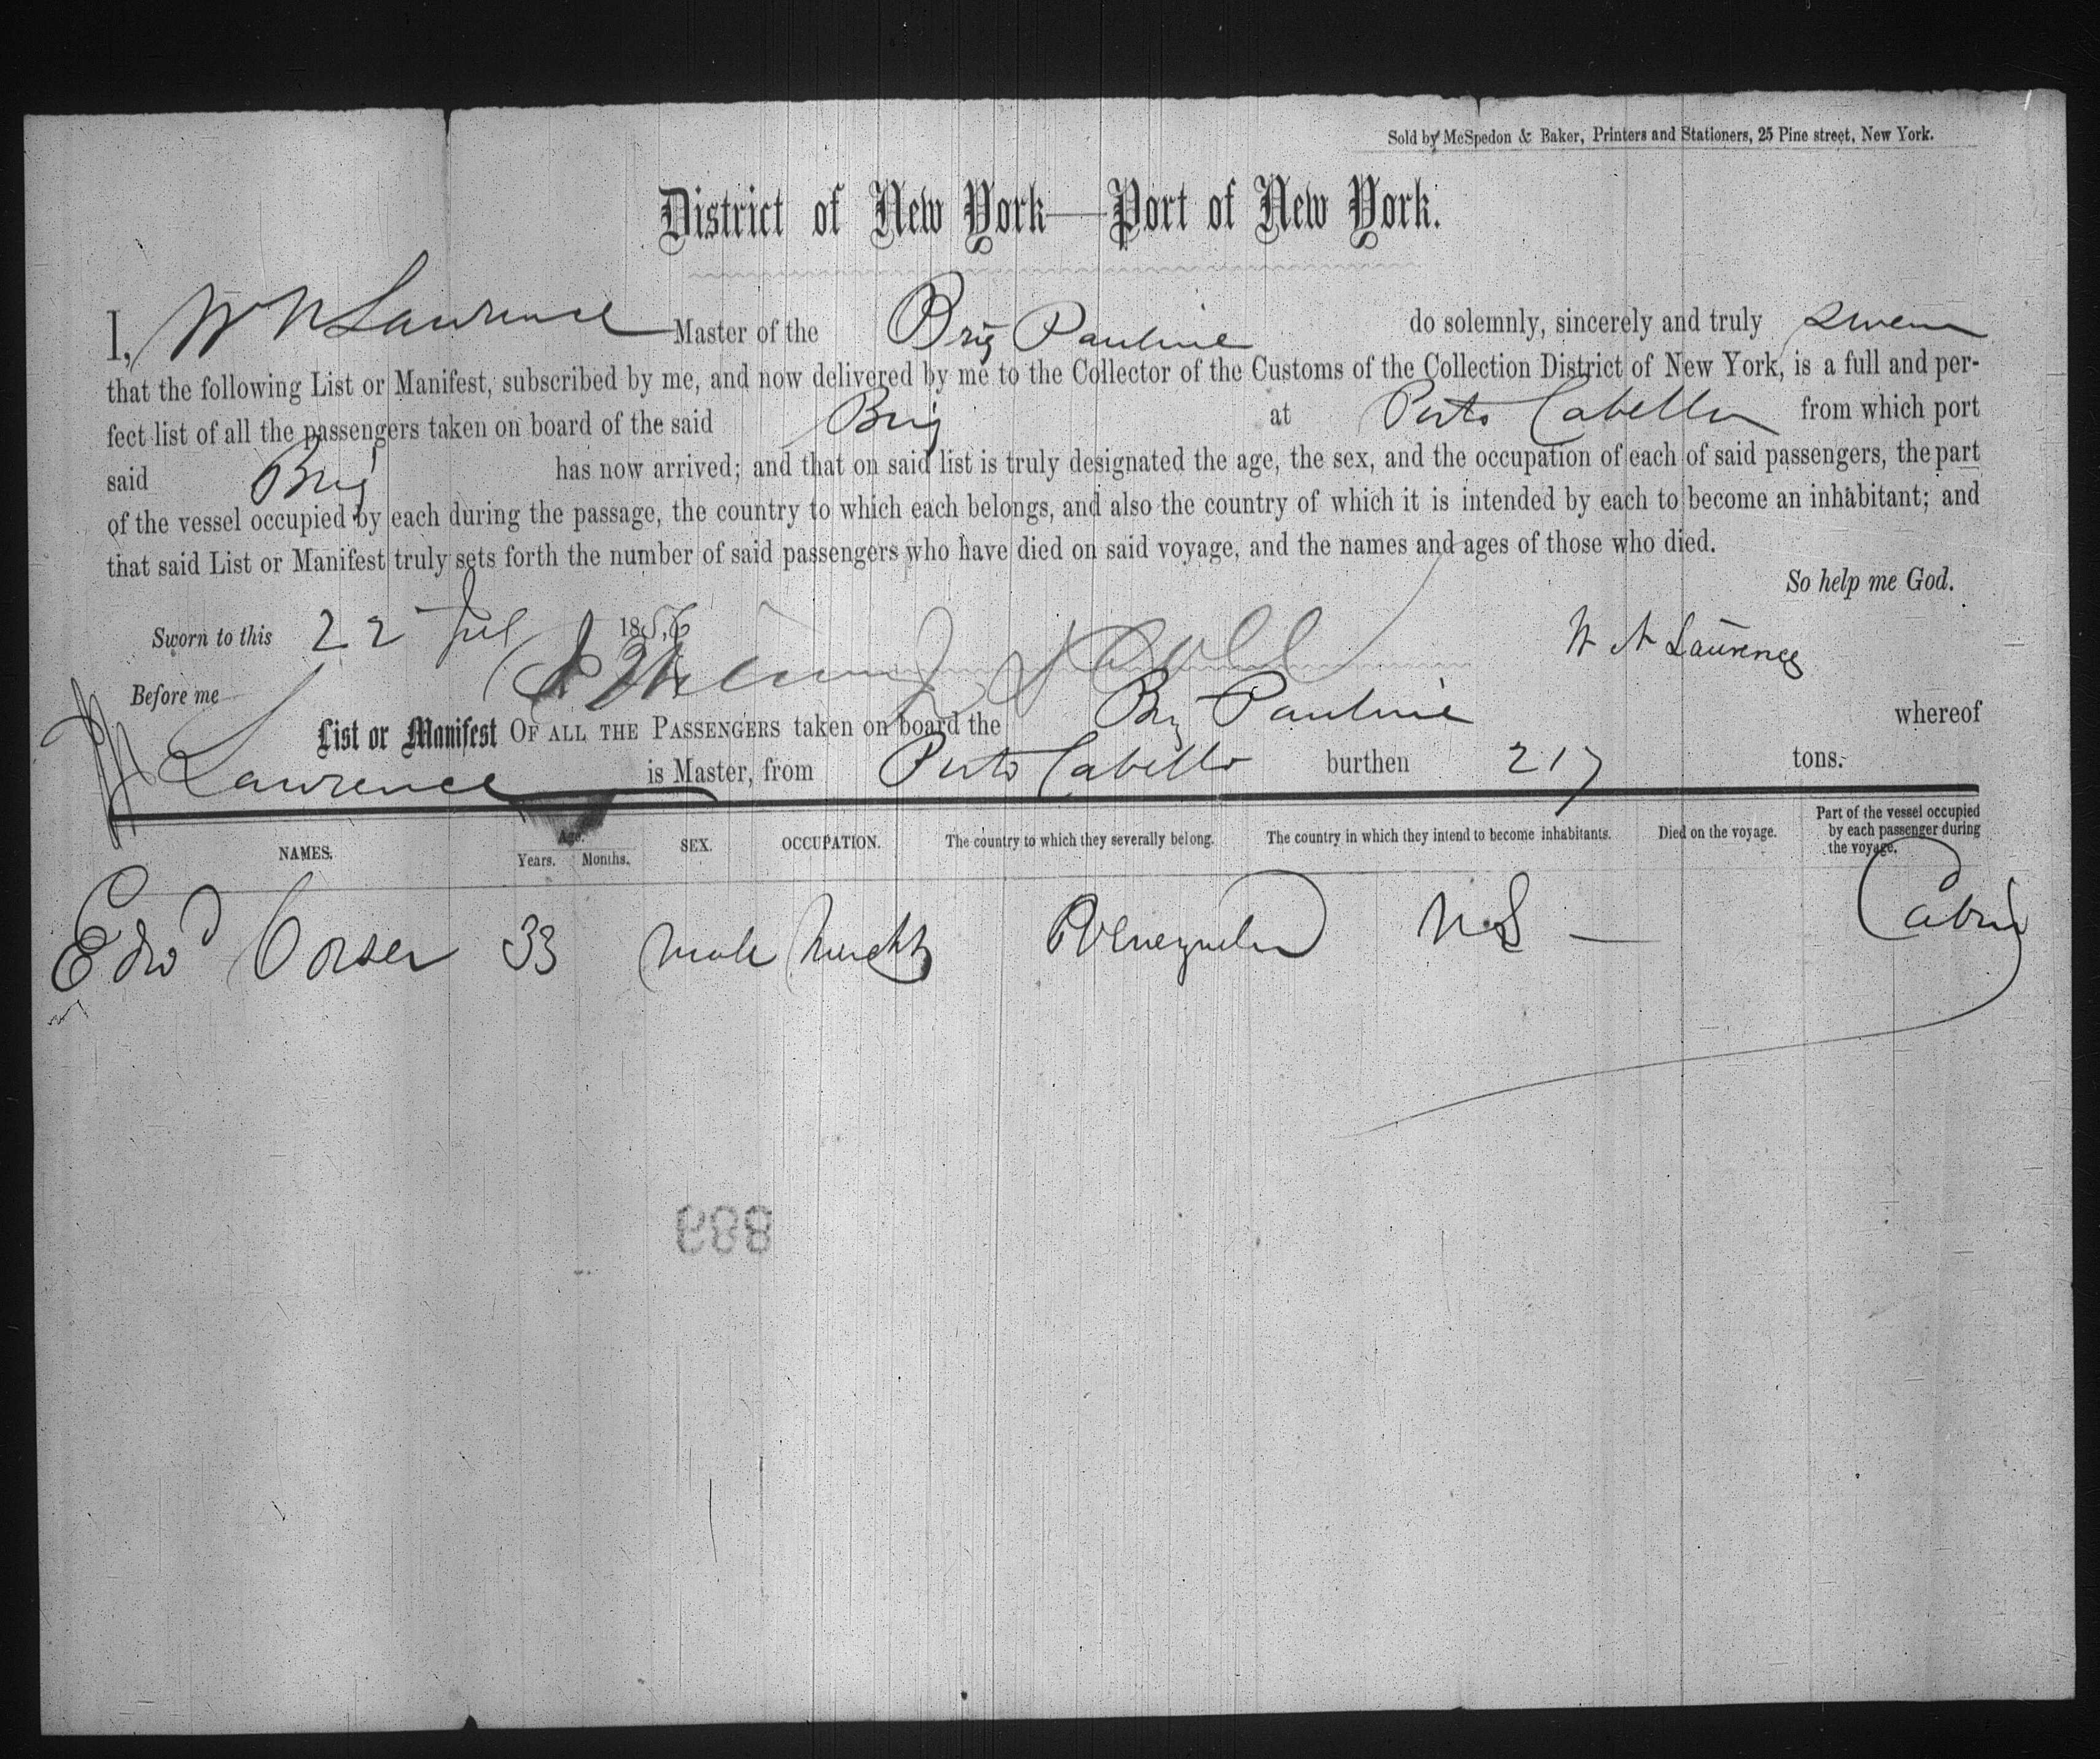 Sold by McSpedon & Baker, Printers and Stationers, 25 Pine street, New York.
District of New York—Port of New York.
I, W N Lawrence Master of the Brig Pauline do solemnly, sincerely and truly swear
that the following List or Manifest, subscribed by me, and now delivered by me to the Collector of the Customs of the Collection District of New York, is a full and per-
fect list of all the passengers taken on board of the said Brig at Porto Cabello from which port
said Brig has now arrived; and that on said list is truly designated the age, the sex, and the occupation of each of said passengers, the part
of the vessel occupied by each during the passage, the country to which each belongs, and also the country of which it is intended by each to become an inhabitant; and
that said List or Manifest truly sets forth the number of said passengers who have died on said voyage, and the names and ages of those who died.
So help me God.
Sworn to this 22 Jul 1856
W N Lawrence
Before me
List or Manifest OF ALL THE PASSENGERS taken on board the Brig Pauline whereof
Lawrence is Master, from Porto Cabello burthen 217 tons.
NAMES. Age. Years. Months. SEX. OCCUPATION. The country to which they severally belong. The country in which they intend to become inhabitants. Died on the voyage. Part of the vessel occupied by each passenger during the voyage.
Edwd Corser 33 Male Mercht Venezuela US — Cabin
889